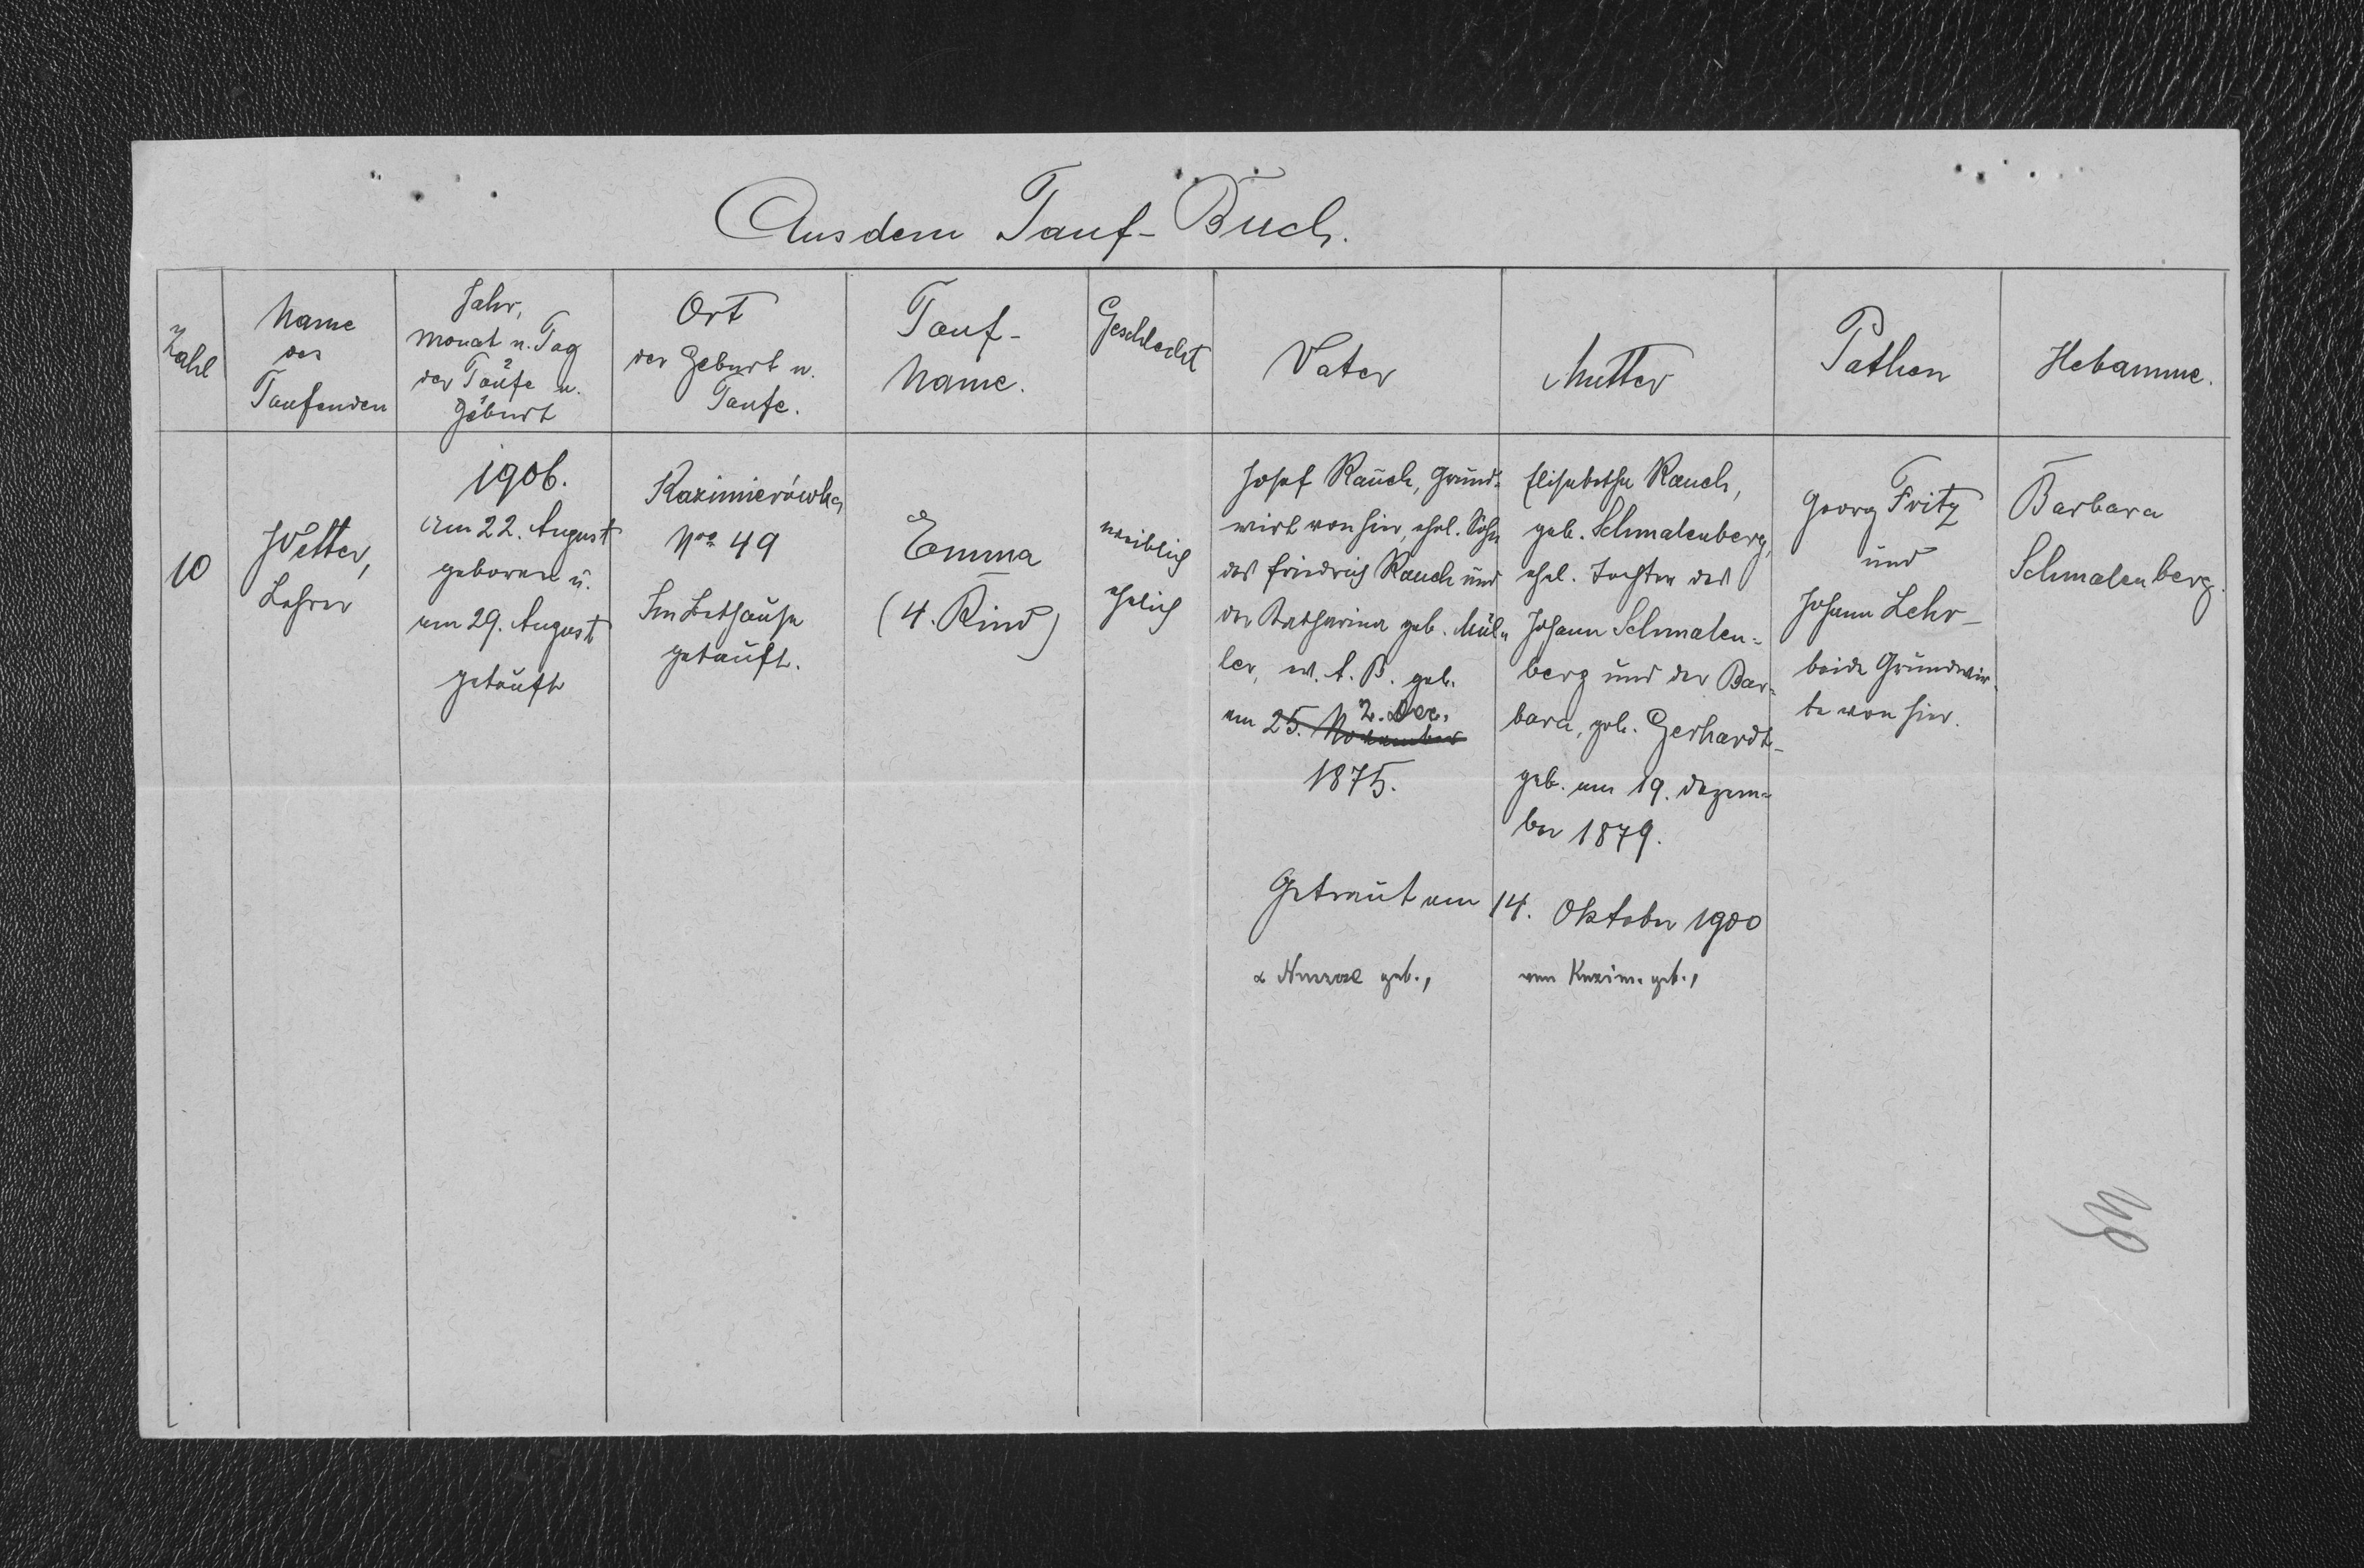 Aus dem Tauf-Buch.
Zahl
Name
des
Taufenden
Jahr,
Monat u. Tag
der Taufe u.
Geburt
Ort
der Geburt u.
Taufe.
Tauf-
Name.
Geschlecht
Vater
Mutter
Pathen
Hebamme.
10
Vetter,
Lehrer
1906.
Am 22. August
geboren u.
am 29. August
getauft
Kazimierówka
Nro 49
Im Bethause
getauft.
Emma
(4. Kind)
weiblich
ehelich
Josef Rauch, Grund-
wirt von hier, ehel. Sohn
des Friedrich Rauch und
der Katharina geb. Mül-
ler, ew. A. B. geb.
2. Dez.
am 25. November
1875.
Elisabetha Rauch,
geb. Schmalenberg,
ehel. Tochter des
Johann Schmalen-
berg und der Bar-
bara, geb. Gerhardt-
geb. am 19. Dezem-
ber 1879.
Getraut am 14. Oktober 1900
geb.,
von Kazim. geb.,
Georg Fritz
und
Johann Lehr-
beide Grundwir-
te von hier.
Barbara
Schmalenberg.